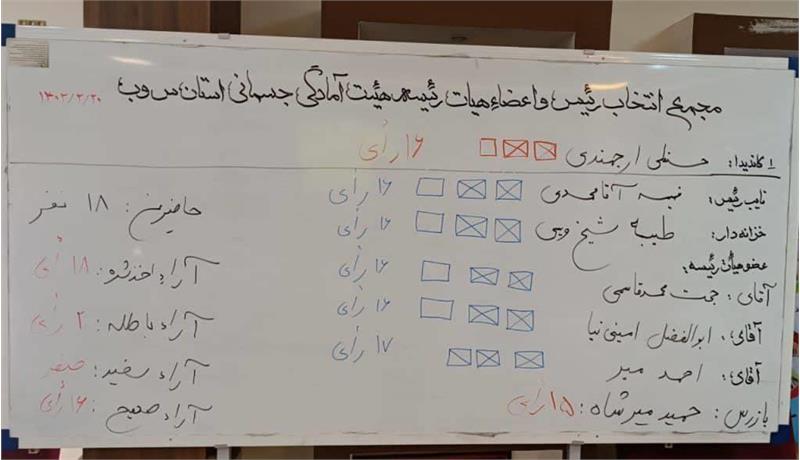 مجمع انتخاب رئیس و اعضاء هیات رئیسه هیئت آمادگی جسمانی استان س وب
۱۴۰۲/۲/۲۰
۱ کاندیدا: ارجمندی ۱۶ رأی
نایب رئیس: آقامحمدی ۱۶ رأی
حاضرین: ۱۸ نفر
خزانه دار: طیبه شیخ ویسی ۱۶ رأی
عضو هیأت رئیسه:
آقای: حجت محمدقاسمی ۱۶ رأی
آراء اخذ شده: ۱۸ رأی
آقای: ابوالفضل امینی نیا ۱۶ رأی
آراء باطله: ۲ رأی
آقای: احمد میر ۱۷ رأی
آراء سفید: صفر
بازرس: حمید میرشاه: ۱۵ رأی
آراء صحیح: ۱۶ رأی